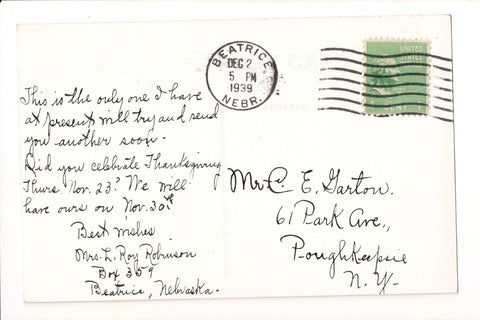 BEATRICE,
DEC 2
5 PM
1939
NEBR.
UNITED
STATES
This is the only one I have
at present will try and send
you another soon.
Did you celebrate Thanksgiving
Thurs. Nov. 23? We will
have ours on Nov. 30th
Best wishes
Mrs. L. Roy Robinson
Box 359
Beatrice, Nebraska.
Mr. C. E. Garton.
61 Park Ave.,
Poughkeepsie
N. Y.